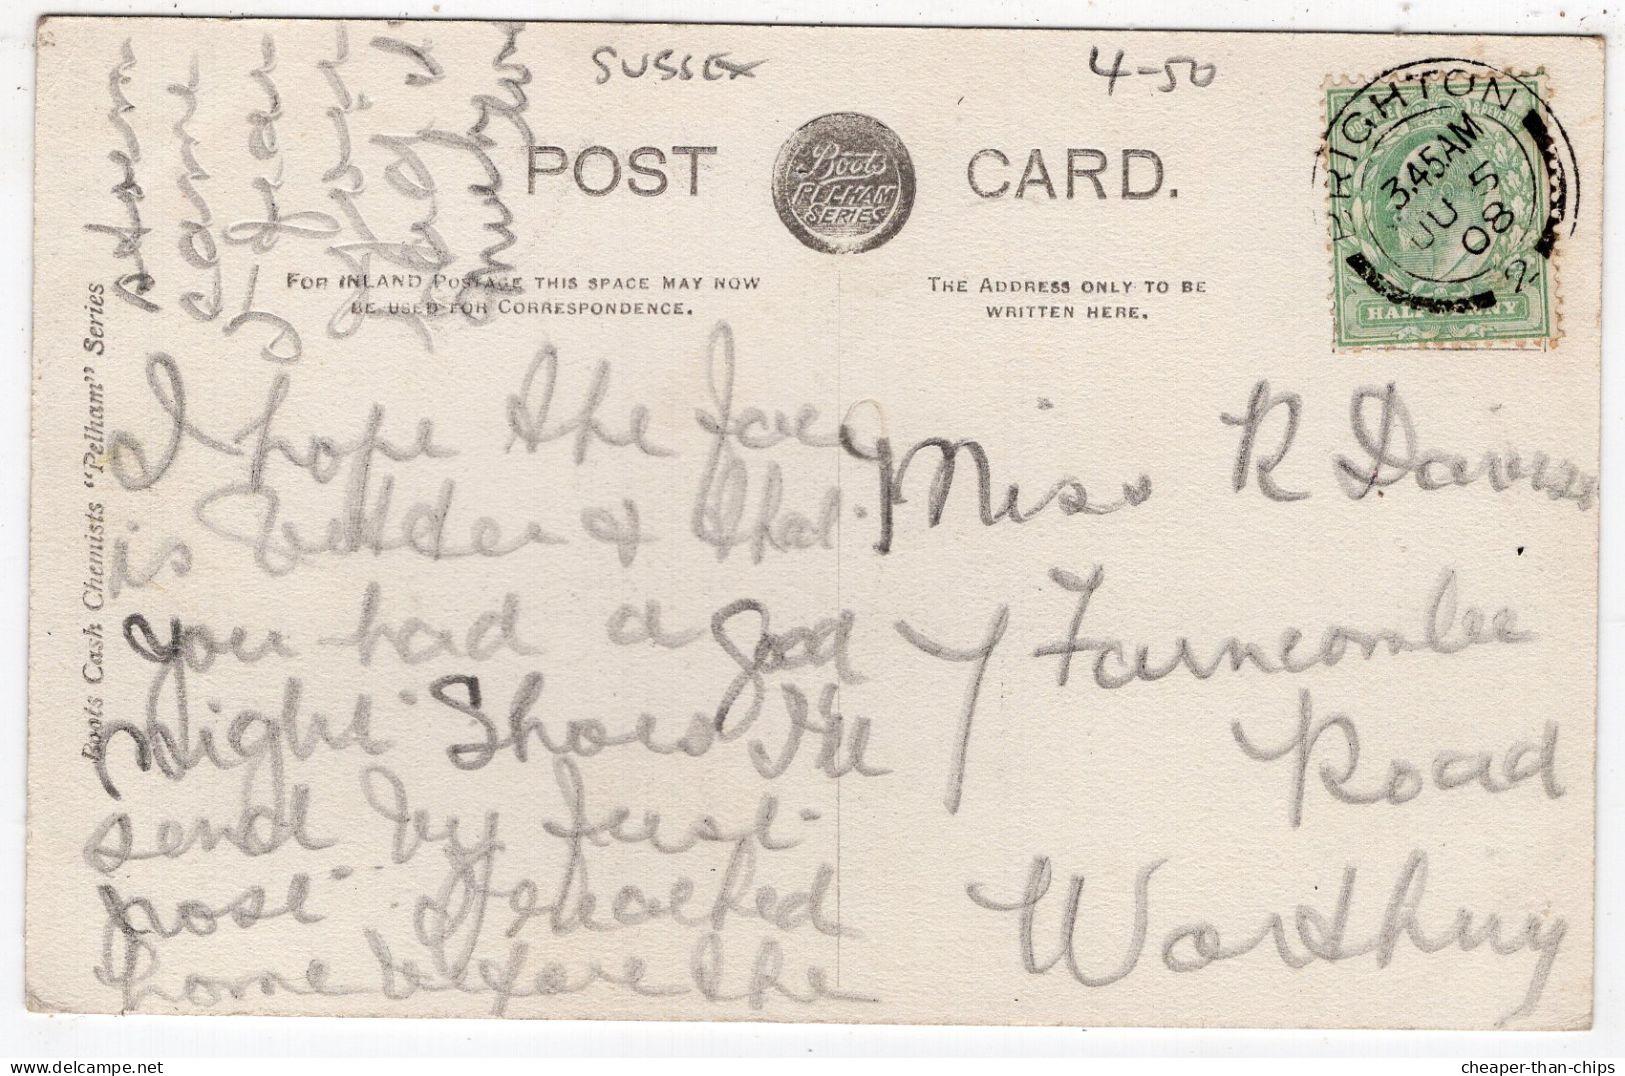 SUSSEX
4-50
POST CARD.
Boots
PELHAM
SERIES
FOR INLAND POSTAGE THIS SPACE MAY NOW
BE USED FOR CORRESPONDENCE.
THE ADDRESS ONLY TO BE
WRITTEN HERE.
BRIGHTON
3.45AM
JU 5
08
2
& REVENUE
HALFPENNY
Boots Cash Chemists "Pelham" Series
I hope the face
is better & that
you had a good
night Shoes I'll
send by first
post I reached
home before the
storm
came
I fear
your
had it
Miss R Davies
7 Farncombe
Road
Worthing
cheaper-than-chips